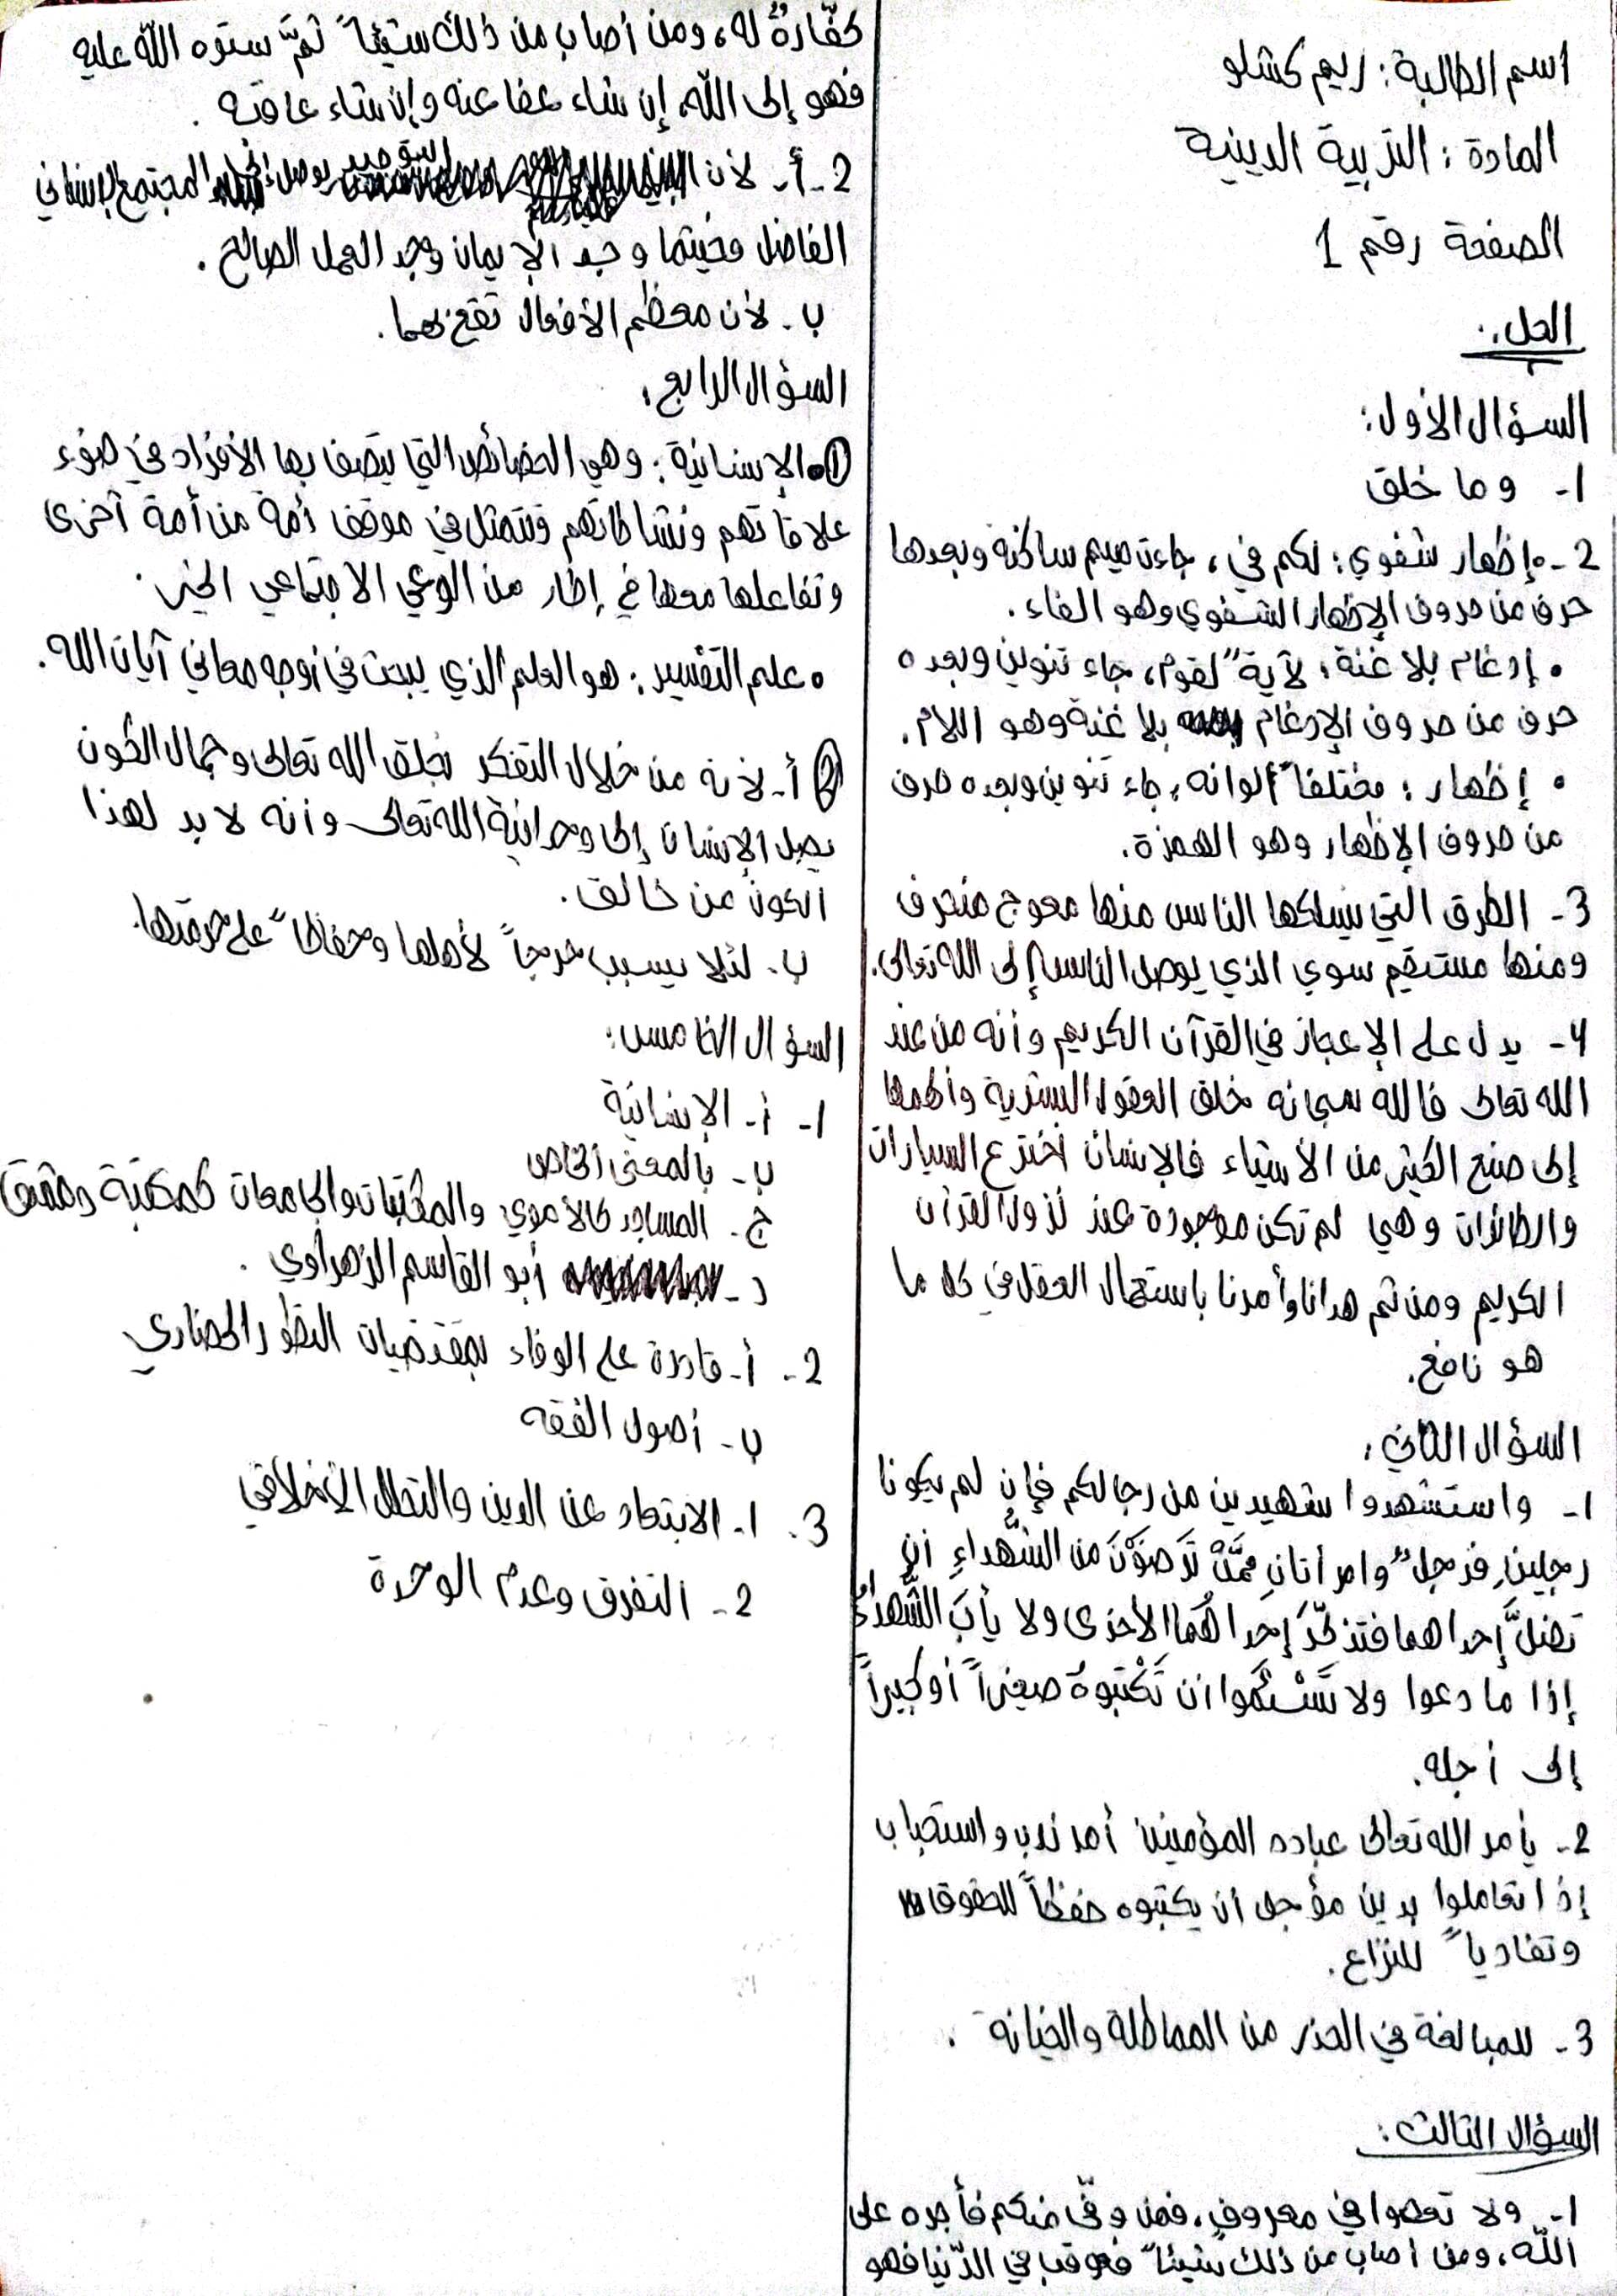 اسم الطالبة: ريم كشلو
المادة: التربية الدينية
الصفحة رقم 1
الحل:
السؤال الأول:
1- وما خلق
2- • إظهار شفوي: لكم في، جاءت ميم ساكنة وبعدها
حرف من حروف الإظهار الشفوي وهو الفاء.
• إدغام بلا غنة: لآيةً لقوم، جاء تنوين وبعده
حرف من حروف الإدغام بلا غنة وهو اللام.
• إظهار: مختلفاً ألوانه، جاء تنوين وبعده حرف
من حروف الإظهار وهو الهمزة.
3- الطرق التي يسلكها الناس منها معوج منحرف
ومنها مستقيم سوي الذي يوصل الناس إلى الله تعالى.
4- يدل على الإعجاز في القرآن الكريم وأنه من عند
الله تعالى فالله سبحانه خلق العقول البشرية وألهمها
إلى صنع الكثير من الأشياء فالإنسان اخترع السيارات
والطائرات وهي لم تكن موجودة عند نزول القرآن
الكريم ومن ثم هدانا وأمرنا باستعمال العقل في كل ما
هو نافع.
السؤال الثاني:
1- واستشهدوا شهيدين من رجالكم فإن لم يكونا
رجلين فرجلٌ وامرأتانِ ممَّنْ تَرضَوْنَ من الشُّهداءِ أن
تضلَّ إحداهما فتذكّرَ إحداهُمَا الأخرى ولا يأبَ الشُّهداءُ
إذا ما دعوا ولا تَسْئَمُوا أن تَكْتبوهُ صغيراً أو كبيراً
إلى أجله.
2- يأمر الله تعالى عباده المؤمنين أمر ندب واستحباب
إذا تعاملوا بدين مؤجل أن يكتبوه حفظاً للحقوق
وتفادياً للنزاع.
3- للمبالغة في الحذر من المماطلة والخيانة.
السؤال الثالث:
1- ولا تعصوا في معروفٍ، فمن وفّى منكم فأجره على
اللّه، ومن أصاب من ذلك شيئاً فعوقب في الدّنيا فهو
كفّارةٌ له، ومن أصاب من ذلك شيئاً ثمَّ ستره اللّه عليه
فهو إلى اللّه، إن شاء عفا عنه وإن شاء عاقبه.
2- أ- لأن التوحيد يوصل إلى المجتمع الإنساني
الفاضل فحيثما وجد الإيمان وجد العمل الصالح.
ب- لأن معظم الأفعال تقع بهما.
السؤال الرابع:
1 • الإنسانية: وهي الخصائص التي يتصف بها الأفراد في ضوء
علاقاتهم ونشاطاتهم وتتمثل في موقف أمة من أمة أخرى
وتفاعلها معها في إطار من الوعي الاجتماعي الخير.
• علم التفسير: هو العلم الذي يبحث في أوجه معاني آيات الله.
2 أ- لأنه من خلال التفكر بخلق الله تعالى وجمال الكون
يصل الإنسان إلى وحدانية الله تعالى وأنه لا بد لهذا
الكون من خالق.
ب- لئلا يسبب حرجاً لأهلها وحفاظاً على حرمتها.
السؤال الخامس:
1- أ- الإنسانية
ب- بالمعنى الخاص
ج- المساجد كالأموي والمكتبات والجامعات كمكتبة دمشق
د- أبو القاسم الزهراوي.
2- أ- قادرة على الوفاء بمقتضيات التطور الحضاري
ب- أصول الفقه
3- 1- الابتعاد عن الدين والتحلل الأخلاقي
2- التفرق وعدم الوحدة